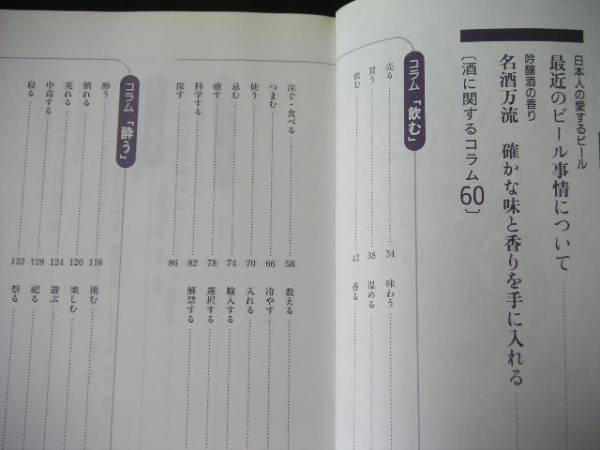 日本人の愛するビール
最近のビール事情について
吟醸酒の香り
名酒万流　確かな味と香りを手に入れる
〔酒に関するコラム60〕
コラム「飲む」
売る 34 味わう
買う 38 温める
飲む 42 香る
注ぐ・食べる 58 数える
つまむ 66 冷やす
使う 70 入れる
忌む 74 輸入する
癒す 78 選択する
科学する 82 解禁する
86
コラム「酔う」
酔う 116 挑む
慣れる 120 楽しむ
荒れる 124 遊ぶ
中毒する 128 祀る
寝る 132 祭る